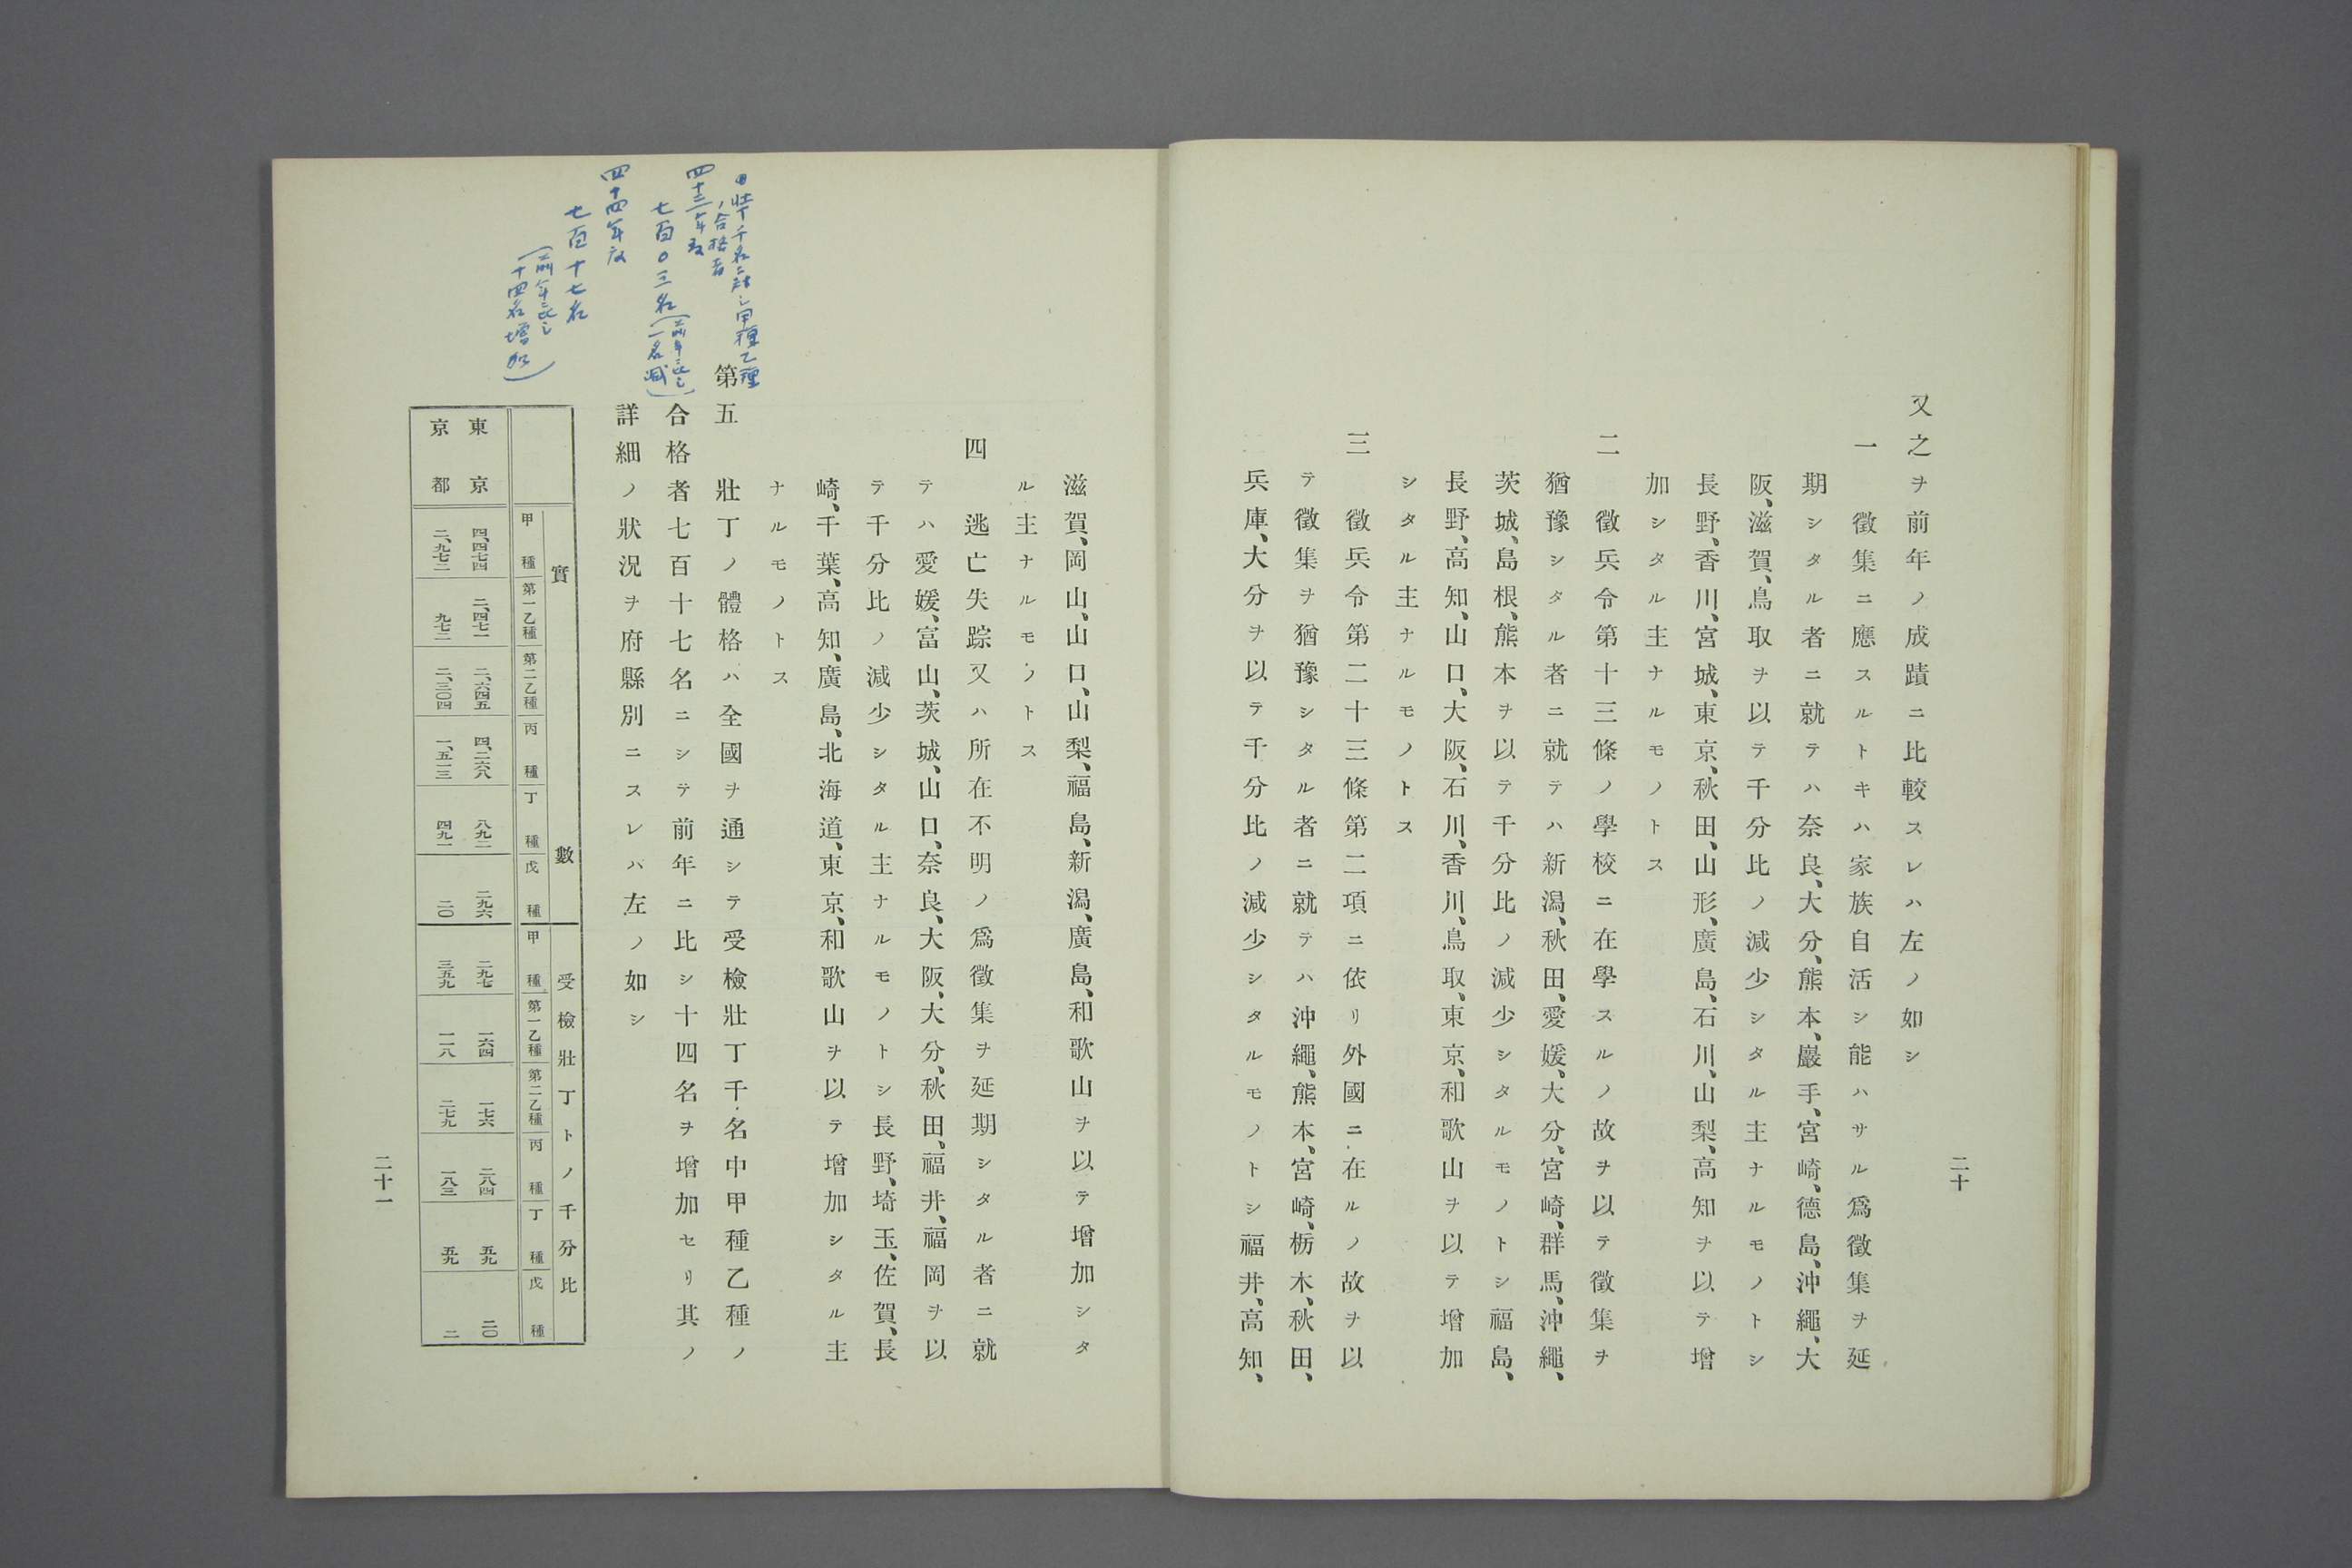 二十
又之ヲ前年ノ成蹟ニ比較スレハ左ノ如シ
一 徵集ニ應スルトキハ家族自活シ能ハサル爲徵集ヲ延
期シタル者ニ就テハ奈良、大分、熊本、巖手、宮崎、德島、沖繩、大
阪、滋賀、鳥取ヲ以テ千分比ノ減少シタル主ナルモノトシ
長野、香川、宮城、東京、秋田、山形、廣島、石川、山梨、高知ヲ以テ增
加シタル主ナルモノトス
二 徵兵令第十三條ノ學校ニ在學スルノ故ヲ以テ徵集ヲ
猶豫シタル者ニ就テハ新潟、秋田、愛媛、大分、宮崎、群馬、沖繩、
茨城、島根、熊本ヲ以テ千分比ノ減少シタルモノトシ福島、
長野、高知、山口、大阪、石川、香川、鳥取、東京、和歌山ヲ以テ增加
シタル主ナルモノトス
三 徵兵令第二十三條第二項ニ依リ外國ニ在ルノ故ヲ以
テ徵集ヲ猶豫シタル者ニ就テハ沖繩、熊本、宮崎、栃木、秋田、
兵庫、大分ヲ以テ千分比ノ減少シタルモノトシ福井、高知、
滋賀、岡山、山口、山梨、福島、新潟、廣島、和歌山ヲ以テ增加シタ
ル主ナルモノトス
四 逃亡失踪又ハ所在不明ノ爲徵集ヲ延期シタル者ニ就
テハ愛媛、富山、茨城、山口、奈良、大阪、大分、秋田、福井、福岡ヲ以
テ千分比ノ減少シタル主ナルモノトシ長野、埼玉、佐賀、長
崎、千葉、高知、廣島、北海道、東京、和歌山ヲ以テ增加シタル主
ナルモノトス
第五 壯丁ノ體格ハ全國ヲ通シテ受檢壯丁千名中甲種乙種ノ
合格者七百十七名ニシテ前年ニ比シ十四名ヲ增加セリ其ノ
詳細ノ狀況ヲ府縣別ニスレバ左ノ如シ
壯丁千名ニ對シ甲種乙種
ノ合格者
四十三年度
七百〇三名(前年ニ比シ
一名減)
四十四年度
七百十七名
(前年ニ比シ
十四名增加)
實數 受檢壯丁トノ千分比
甲種 第一乙種 第二乙種 丙種 丁種 戊種 甲種 第一乙種 第二乙種 丙種 丁種 戊種
東京 四、四七四 二、四七一 二、六四五 四、二六八 八九二 二九六 二九七 一六四 一七六 二八四 五九 二〇
京都 二、九七二 九七二 二、三〇四 一、五一三 四九一 二〇 三五九 一一八 二七九 一八三 五九 二
二十一